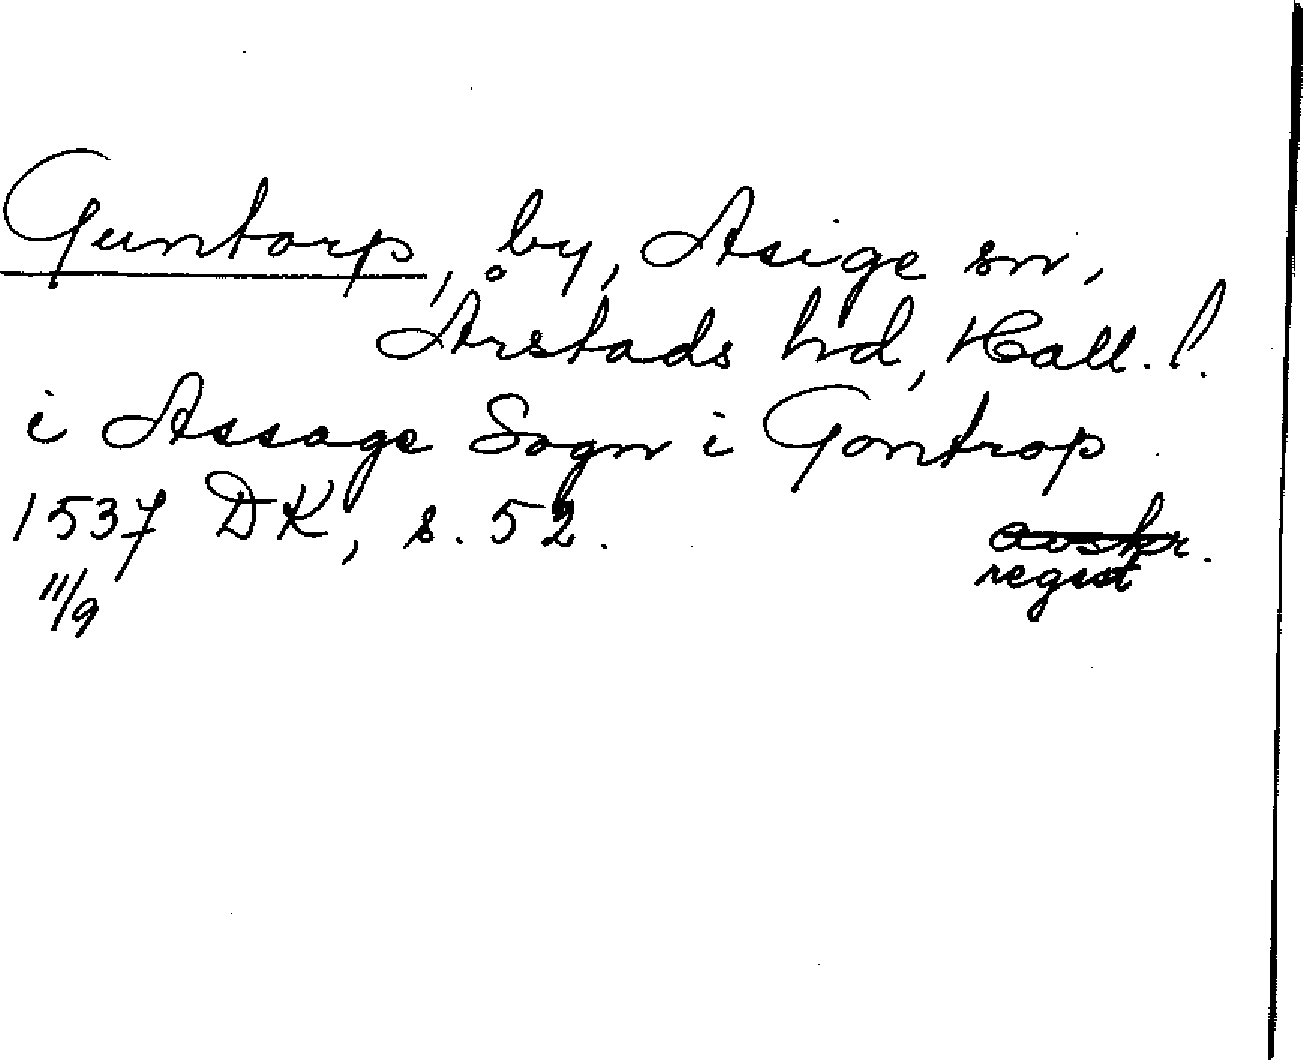 Guntorp, by, Asige sn,
Årstads hd, Hall. l.
i Assage Sogn i Gontrop.
1537 DK, s. 52.
avskr.
regist
11/9